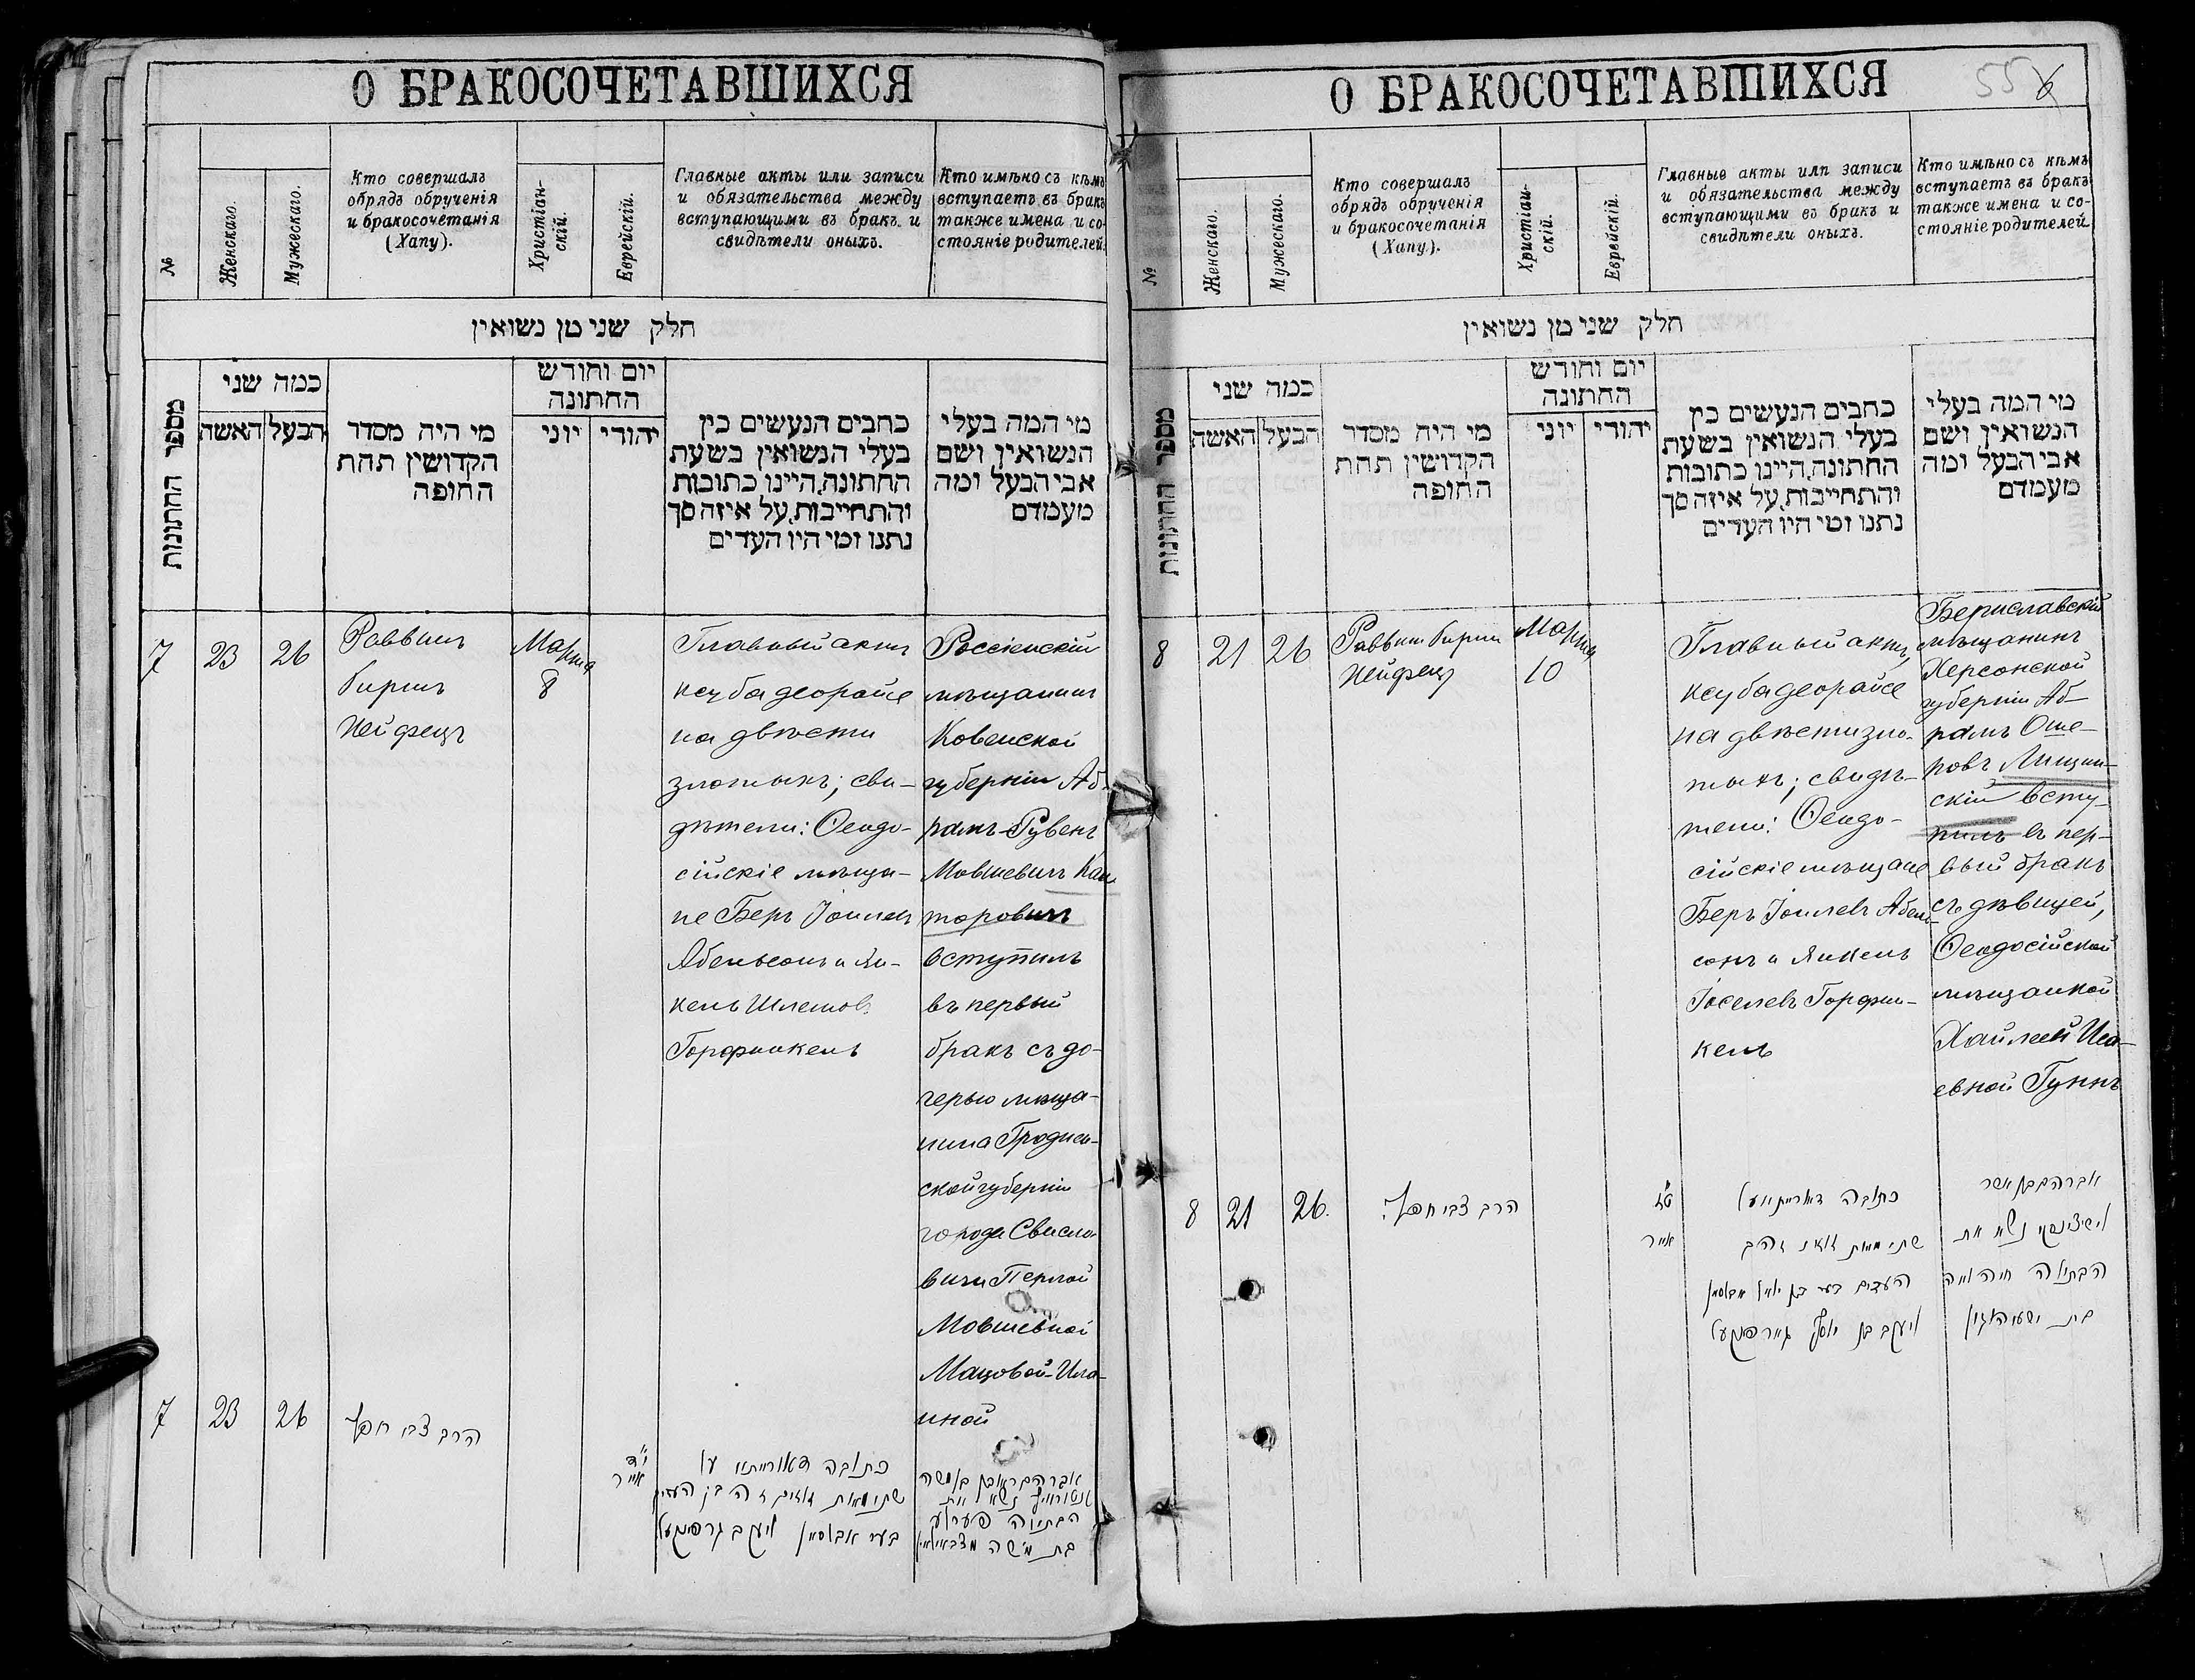 О БРАКОСОЧЕТАВШИХСЯ
№
Женскаго.
Мужескаго.
Кто совершалъ
обрядъ обрученія
и бракосочетанія
(Хапу).
Христіан-
скій.
Еврейскій.
Главные акты или записи
и обязательства между
вступающими въ бракъ и
свидѣтели оныхъ.
Кто имѣно съ кѣмъ
вступаетъ въ бракъ
также имена и со-
стояніе родителей.
חלק שני מן נשואין
מספר החתונות
כמה שני
האשה
הבעל
מי היה מסדר
הקדושין תחת
החופה
יום וחודש
החתונה
יוני
יהודי
כתבים הנעשים בין
בעלי הנשואין בשעת
החתונה, היינו כתובות
והתחייבות, על איזה סך
נתנו ומי היו העדים
מי המה בעלי
הנשואין ושם
אבי הבעל ומה
מעמדם
7
23
26
Раввинъ
Гиршъ
Хейфецъ
Марта
8
Главный актъ
ксуба деорайсе
на двѣсти
злотыхъ; сви-
дѣтели: Ѳеодо-
сійскіе мѣща-
не Беръ Іоилевъ
Абельсонъ и Ян-
кель
Горфинкель
Россіенскій
мѣщанинъ
Ковенской
губерніи Аб-
рамъ-Рувенъ
Мовшевичъ Кан-
торовичъ
вступилъ
въ первый
бракъ съ до-
черью мѣща-
нина Гроднен-
ской губерніи
города Свисло-
вичи Перлой
Мовшевной
7
23
26
הרב צבי חפץ
י"ד
אייר
כתובה דאורייתא על
שתי מאות זהב העדים
בער אבלסאן ויעקב גרפינקעל
אברהם ראובן בן משה
קנטוראוויץ נשא את
הבתולה פערלע
בת משה
О БРАКОСОЧЕТАВШИХСЯ
55
6
№
Женскаго.
Мужескаго.
Кто совершалъ
обрядъ обрученія
и бракосочетанія
(Хапу).
Христіан-
скій.
Еврейскій.
Главные акты или записи
и обязательства между
вступающими въ бракъ и
свидѣтели оныхъ.
Кто имѣно съ кѣмъ
вступаетъ въ бракъ
также имена и со-
стояніе родителей.
חלק שני מן נשואין
מספר החתונות
כמה שני
האשה
הבעל
מי היה מסדר
הקדושין תחת
החופה
יום וחודש
החתונה
יוני
יהודי
כתבים הנעשים בין
בעלי הנשואין בשעת
החתונה, היינו כתובות
והתחייבות, על איזה סך
נתנו ומי היו העדים
מי המה בעלי
הנשואין ושם
אבי הבעל ומה
מעמדם
8
21
26
Раввинъ Гиршъ
Хейфецъ
Марта
10
Главный актъ,
ксуба деорайсе
на двѣсти зло-
тыхъ; свидѣ-
тели: Ѳеодо-
сійскіе мѣщане
Беръ Іоилевъ Абель-
сонъ и Янкель
Іоселевъ Горфин-
кель
Бериславскій
мѣщанинъ
Херсонской
губерніи Аб-
рамъ Оше-
ровъ Лищин-
скій всту-
пилъ въ пер-
вый бракъ
съ дѣвицей,
Ѳеодосійской
мѣщанкой
евной
8
21
26.
הרב צבי חפץ
ט"ז
אייר
כתובה דאורייתא על
שתי מאות זהב
העדים בער בן יואל אבלסאן
ויעקב בן יוסף גורפינקעל
אברהם בן אשר
לישצינסקי נשא את
הבתולה חיה
בת ישעיה